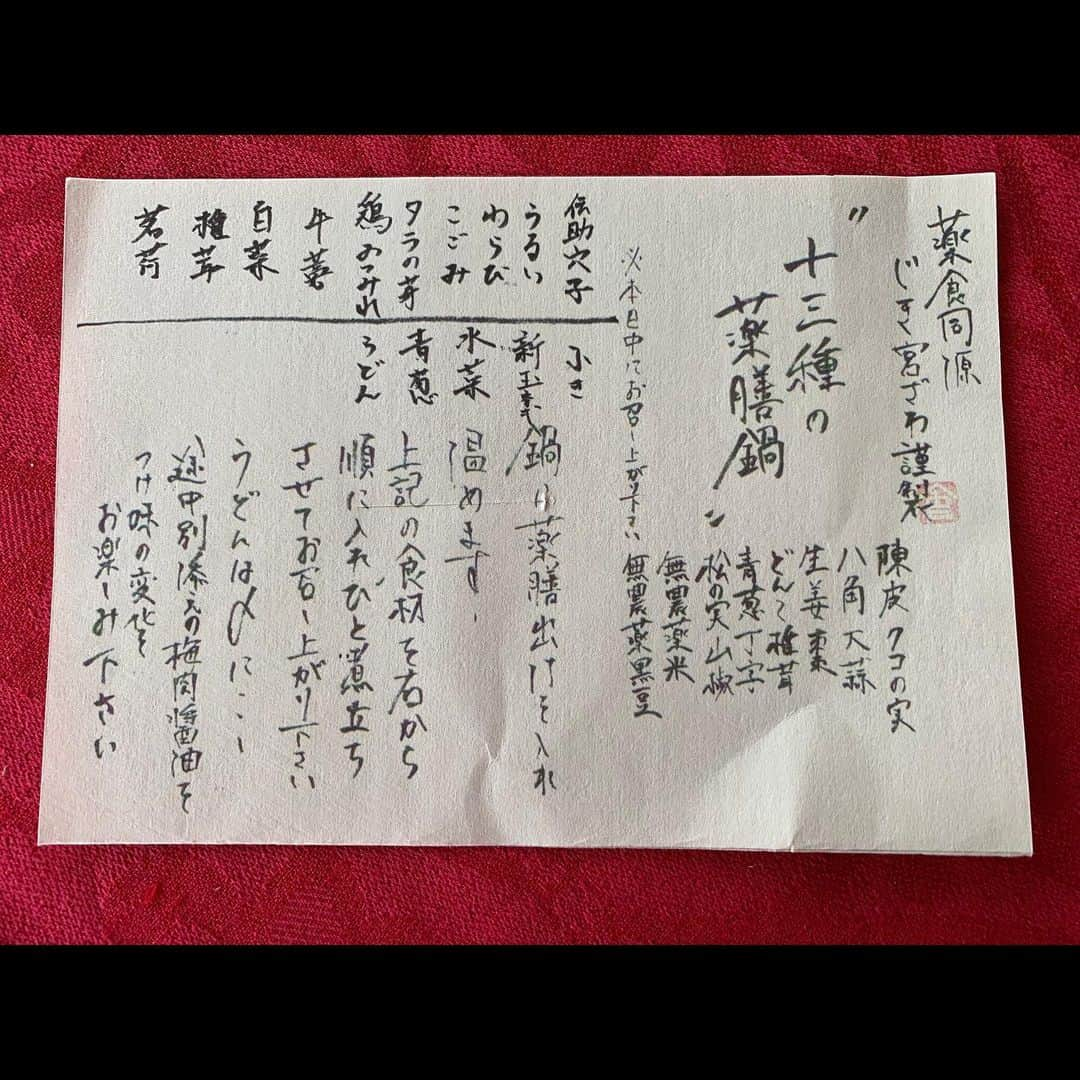 薬食同源
じき宮ざわ謹製
陳皮 クコの実
八角 大蒜
生姜 棗
どんこ椎茸
青葱 丁字
松の実 山椒
無農薬米
無農薬黒豆
”十三種の
薬膳鍋”
※本日中にお召し上がり下さい
伝助穴子
うるい
わらび
こごみ
タラの芽
鶏みつみれ
牛蒡
白菜
椎茸
茗荷
ふき
新玉ネギ
水菜
青葱
うどん
鍋に薬膳出汁を入れ
温めます。
上記の食材を右から
順に入れひと煮立ち
させてお召し上がり下さい
うどんは〆にどうぞ
途中別添えの梅肉醤油を
つけ味の変化を
お楽しみ下さい